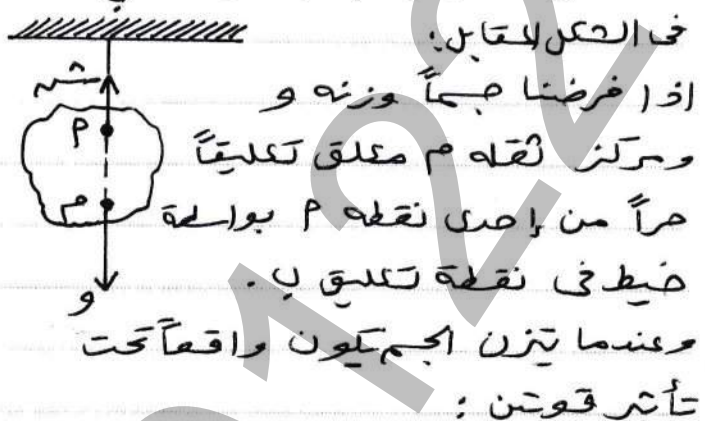 ب
فى الشكل المقابل:
اذا فرضنا جسماً وزنه و
ومركز ثقله م معلق تعليقاً
حراً من إحدى نقطه م بواسطة
خيط فى نقطة تعليق ب.
وعندما يتزن الجسم يكون واقعاً تحت
تأثير قوتين:
شـ
م
م
و